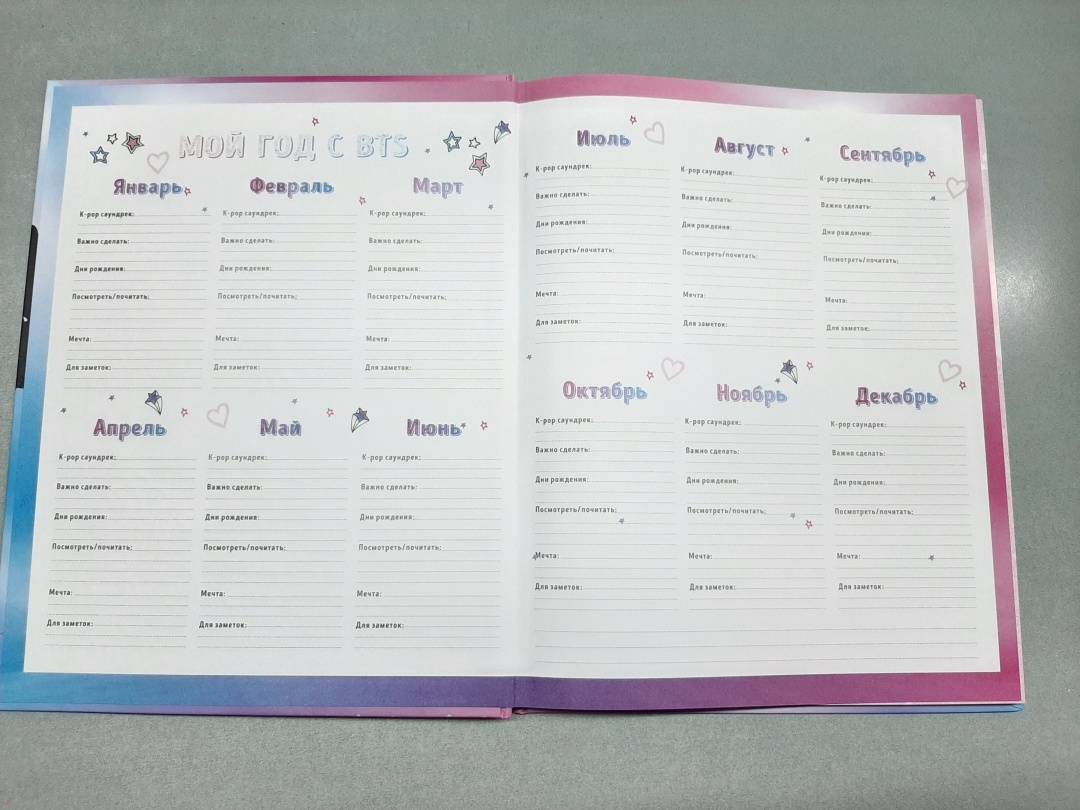 МОЙ ГОД С BTS
Январь
K-pop саундрек:
Важно сделать:
Дни рождения:
Посмотреть/почитать:
Мечта:
Для заметок:
Февраль
K-pop саундрек:
Важно сделать:
Дни рождения:
Посмотреть/почитать:
Мечта:
Для заметок:
Март
K-pop саундрек:
Важно сделать:
Дни рождения:
Посмотреть/почитать:
Мечта:
Для заметок:
Апрель
K-pop саундрек:
Важно сделать:
Дни рождения:
Посмотреть/почитать:
Мечта:
Для заметок:
Май
K-pop саундрек:
Важно сделать:
Дни рождения:
Посмотреть/почитать:
Мечта:
Для заметок:
Июнь
K-pop саундрек:
Важно сделать:
Дни рождения:
Посмотреть/почитать:
Мечта:
Для заметок:
Июль
K-pop саундрек:
Важно сделать:
Дни рождения:
Посмотреть/почитать:
Мечта:
Для заметок:
Август
K-pop саундрек:
Важно сделать:
Дни рождения:
Посмотреть/почитать:
Мечта:
Для заметок:
Сентябрь
K-pop саундрек:
Важно сделать:
Дни рождения:
Посмотреть/почитать:
Мечта:
Для заметок:
Октябрь
K-pop саундрек:
Важно сделать:
Дни рождения:
Посмотреть/почитать:
Мечта:
Для заметок:
Ноябрь
K-pop саундрек:
Важно сделать:
Дни рождения:
Посмотреть/почитать:
Мечта:
Для заметок:
Декабрь
K-pop саундрек:
Важно сделать:
Дни рождения:
Посмотреть/почитать:
Мечта:
Для заметок: